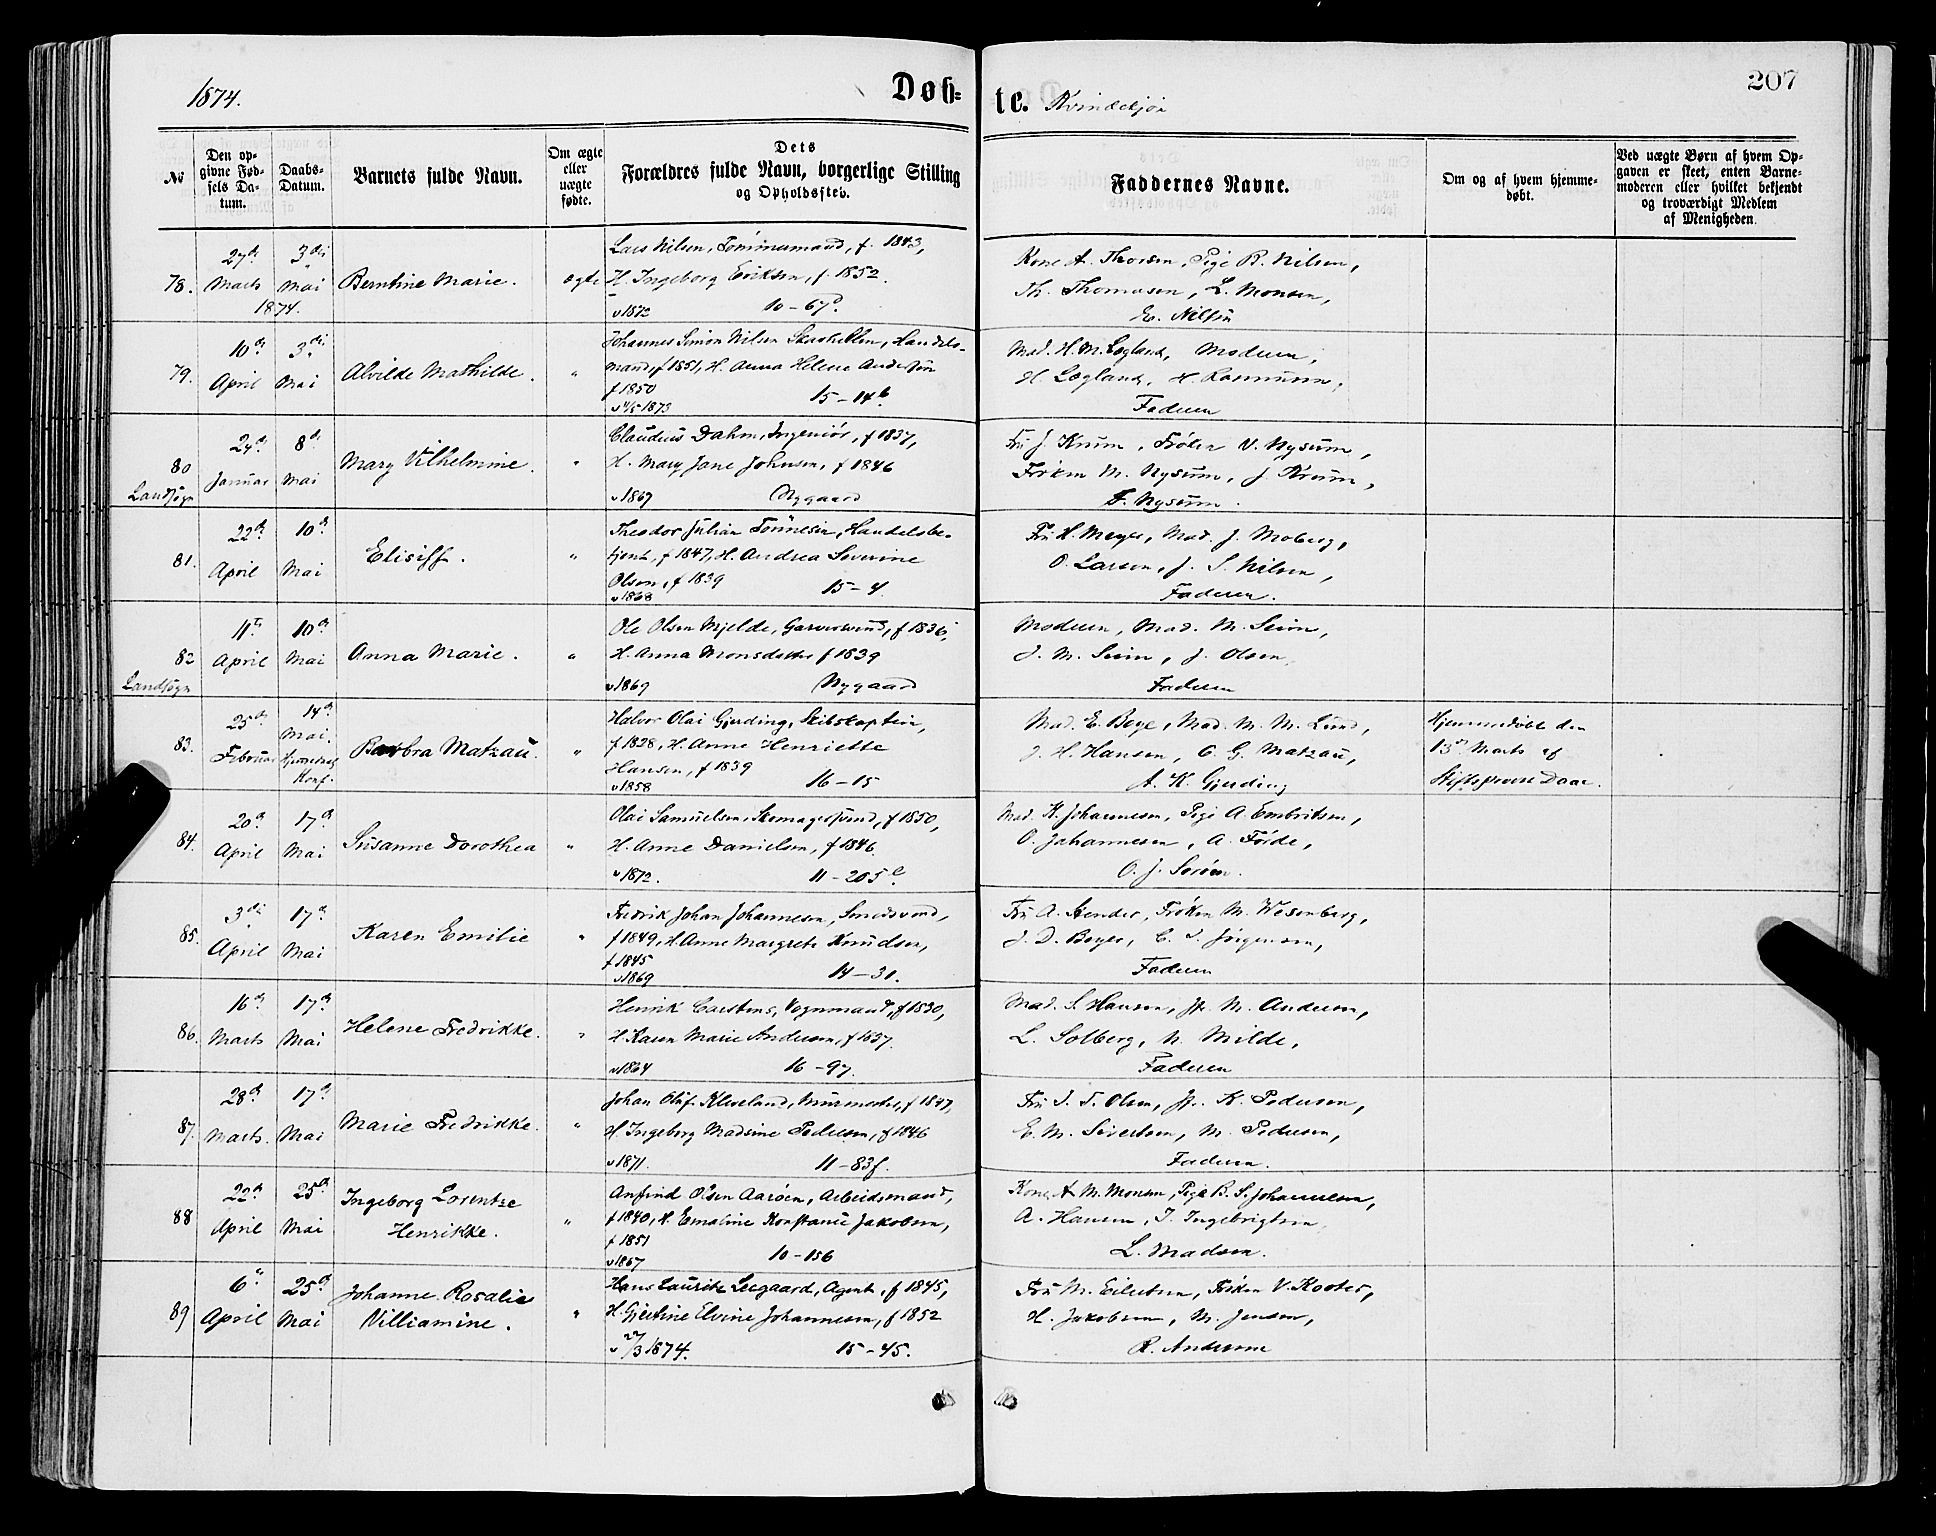 1874.
Døb-
te. Kvindekjøn
207
No
Den op-
givne Fød-
sels Da-
tum.
Daabs-
Datum.
Barnets fulde Navn.
Om ægte
eller
uægte
fødte.
Dets
Forældres fulde Navn, borgerlige Stilling
og Opholdssted.
Faddernes Navne.
Om og af hvem hjemme-
døbt.
Ved uægte Børn af hvem Op-
gaven er skeet, enten Barne-
moderen eller hvilket bekjendt
og troværdigt Medlem
af Menigheden.
78.
27de
Marts
3die
Mai
1874.
Berntine Marie.
ægte
Lars Nilsen, Tømmermand, f. 1843,
H. Ingeborg Eriksen, f. 1852.
v 1872 10-67d
Kone A. Thorsen, Pige B. Nilsen,
Th. Thomasen, L. Monsen,
E. Nilsen
79.
10de
April
3die
Mai
Alvilde Mathilde.
"
Johannes Simon Nilsen Handels-
mand, f 1851, H. Anna Helene Andersen
f 1850
v 4/5 1873 15-14b
Mad. H. M. Løgland, Moderen,
H. Løgland, H. Rasmussen,
Faderen
80
Landsogn
24de
Januar
8de
Mai
Mary Vilhelmine.
"
Claudius Dahm, Ingeniør, f 1837,
H. Mary Jane Johnsen, f 1846
v 1869 Nygaard
Fru J. Krum, Frøken V. Nysum,
Frøken M. Nysum, J. Krum,
F. Nysum.
81.
22de
April
10de
Mai
Elisiff.
"
Theodor Julian Tønnesen, Handelsbe-
tjent, f 1847, H. Andrea Severine
Olsen, f 1839
v 1868 15-4
Fru H. Meyer, Mad. J. Moberg,
O. Larsen, J. S. Nilsen,
Faderen.
82
Landsogn
11te
April
10de
Mai
Anna Marie.
"
Ole Olsen Mjelde, Garversvend, f 1836,
H. Anna Monsdatter f 1839
v 1869 Nygaard
Moderen, Mad. M. Seim,
J. M. Seim, J. Olsen,
Faderen
83.
25de
Februar
14de
Mai.
Barbra Matzau.
"
Halvor Olai Gjerding, Skibskaptein,
f 1828, H. Anne Henriette
Hansen, f 1839
v 1858 16-15
Mad. E. Boye, Mad. M. M. Lund,
J. H. Hansen, C. G. Matzau,
A. K. Gjerding
Hjemmedøbt den
13de Marts af
Stiftsprovst Daae.
84.
20de
April
17de
Mai
Susanne Dorothea
"
Olai Samuelsen, Skomagersvend, f 1850,
H. Anne Danielsen, f 1846.
v 1872. 11-205b.
Mad. K. Johannesen, Pige A. Embritsen,
O. Johannesen, A. Førde,
O. J. Sørøen.
85.
3die
April
17de
Mai
Karen Emilie
"
Fredrik Johan Johannesen, Smedsvend,
f 1849, H. Anne Margrete Knudsen,
f 1845
v 1869 14-31.
Fru A. Stender, Frøken M. Wesenberg,
J. D. Beyer, C. J. Jørgensen,
Faderen
86.
16de
Marts
17de
Mai
Helene Fredrikke.
"
Henrik Carstens, Vognmand, f 1830,
H. Karen Marie Andersen, f 1837.
v 1864 16-97.
Mad. S. Hansen, Jfr. M. Andersen,
L. Solberg, N. Milde,
Faderen
87.
28de
Marts.
17de
Mai
Marie Fredrikke.
"
Johan Oluf Kleveland, Murmester, f 1847,
H. Ingeborg Madsine Pedersen, f 1846
v 1871. 11-83f.
Fru J. T. Olsen, Jfr. K. Pedersen,
E. M. Sivertsen, M. Pedersen,
Faderen.
88
22de
April
25de
Mai
Ingeborg Lorentze
Henrikke.
"
Anfind Olsen Aarøen, Arbeidsmand,
f 1840, H. Emaline Konstanse Jakobsen,
f 1851
v 1867 10-156
Kone A. M. Monsen, Pige B. S. Johannesen,
A. Hansen, J. Ingebrigtsen
L. Madsen.
89
6te
April
25de
Mai
Johanne Rosalie
Villiamine.
"
Hans Lauritz Leegaard, Agent, f 1845,
H. Gjertine Elvine Johannesen, f 1852
v 27/3 1874. 15-45.
Fru M. Eilertsen, Frøken V. Kooter,
H. Jakobsen, M. Jensen,
R. Andersen